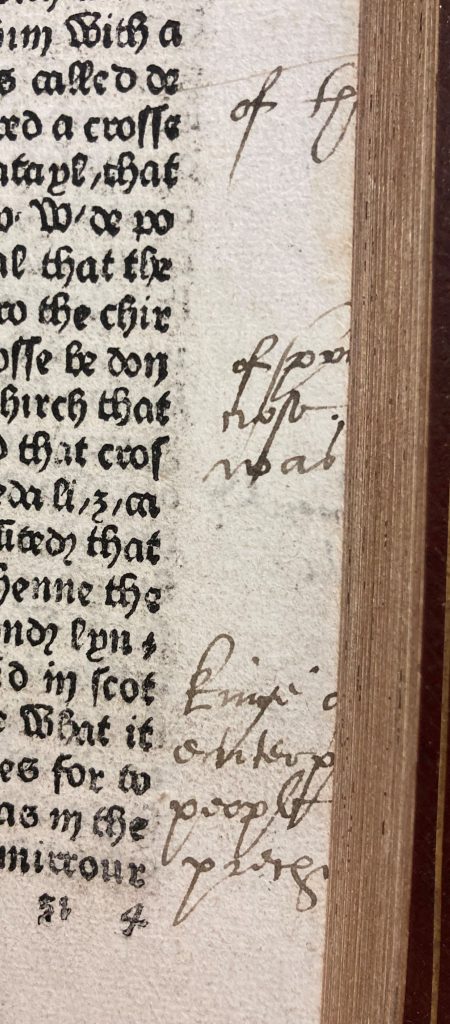 him With a
s called de
red a crosse
atayl, that
W/ de po
al that the
to the chir
osse be don
hirch that
d that cros
eda li, z, ca
that
henne the
lyn
d in scot
e What it
es for to
as in the
mirrour
4
of th
of
was
kinge
enterp
people